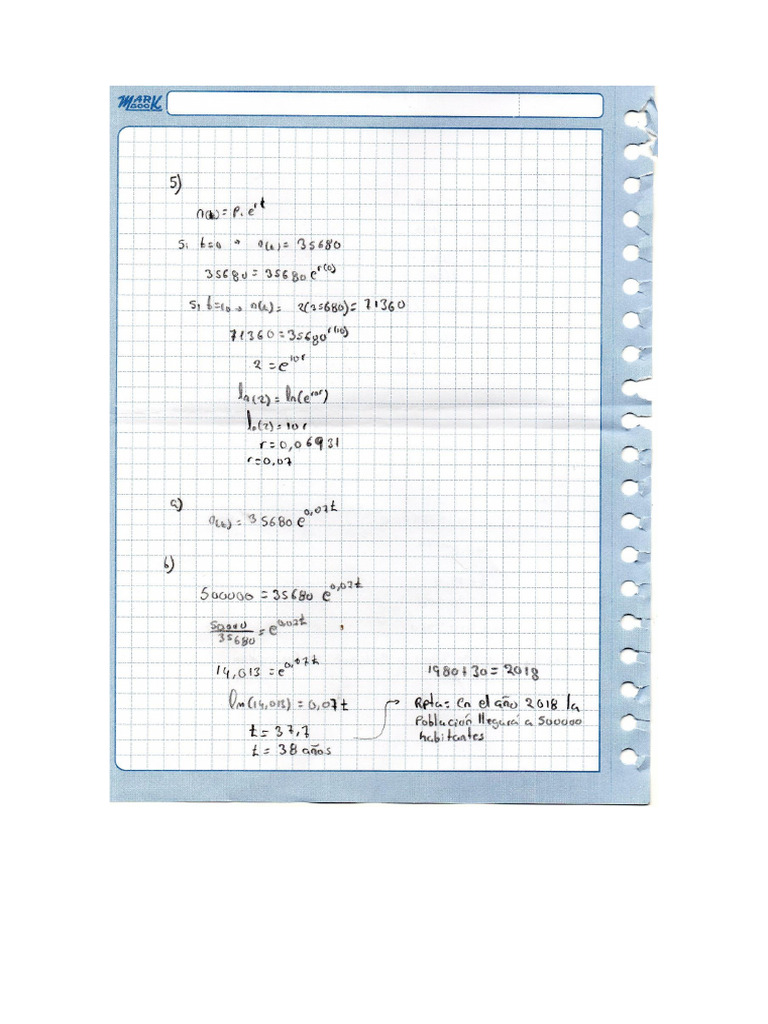 MARK BOOK
5)
n(t) = P. e^rt
Si t=0 → n(t) = 35680
35680 = 35680 e^r(0)
Si t=10 → n(t) = 2(35680) = 71360
71360 = 35680^r(10)
2 = e^10r
ln(2) = ln(e^10r)
ln(2) = 10r
r = 0,06931
r = 0,07
a)
n(t) = 35680 e^0,07t
b)
500000 = 35680 e^0,07t
500000/35680 = e^0,07t
14,013 = e^0,07t
ln(14,013) = 0,07t
t = 37,7
t = 38 años
1980 + 30 = 2018
Rpta: En el año 2018 la
Población llegará a 500000
habitantes